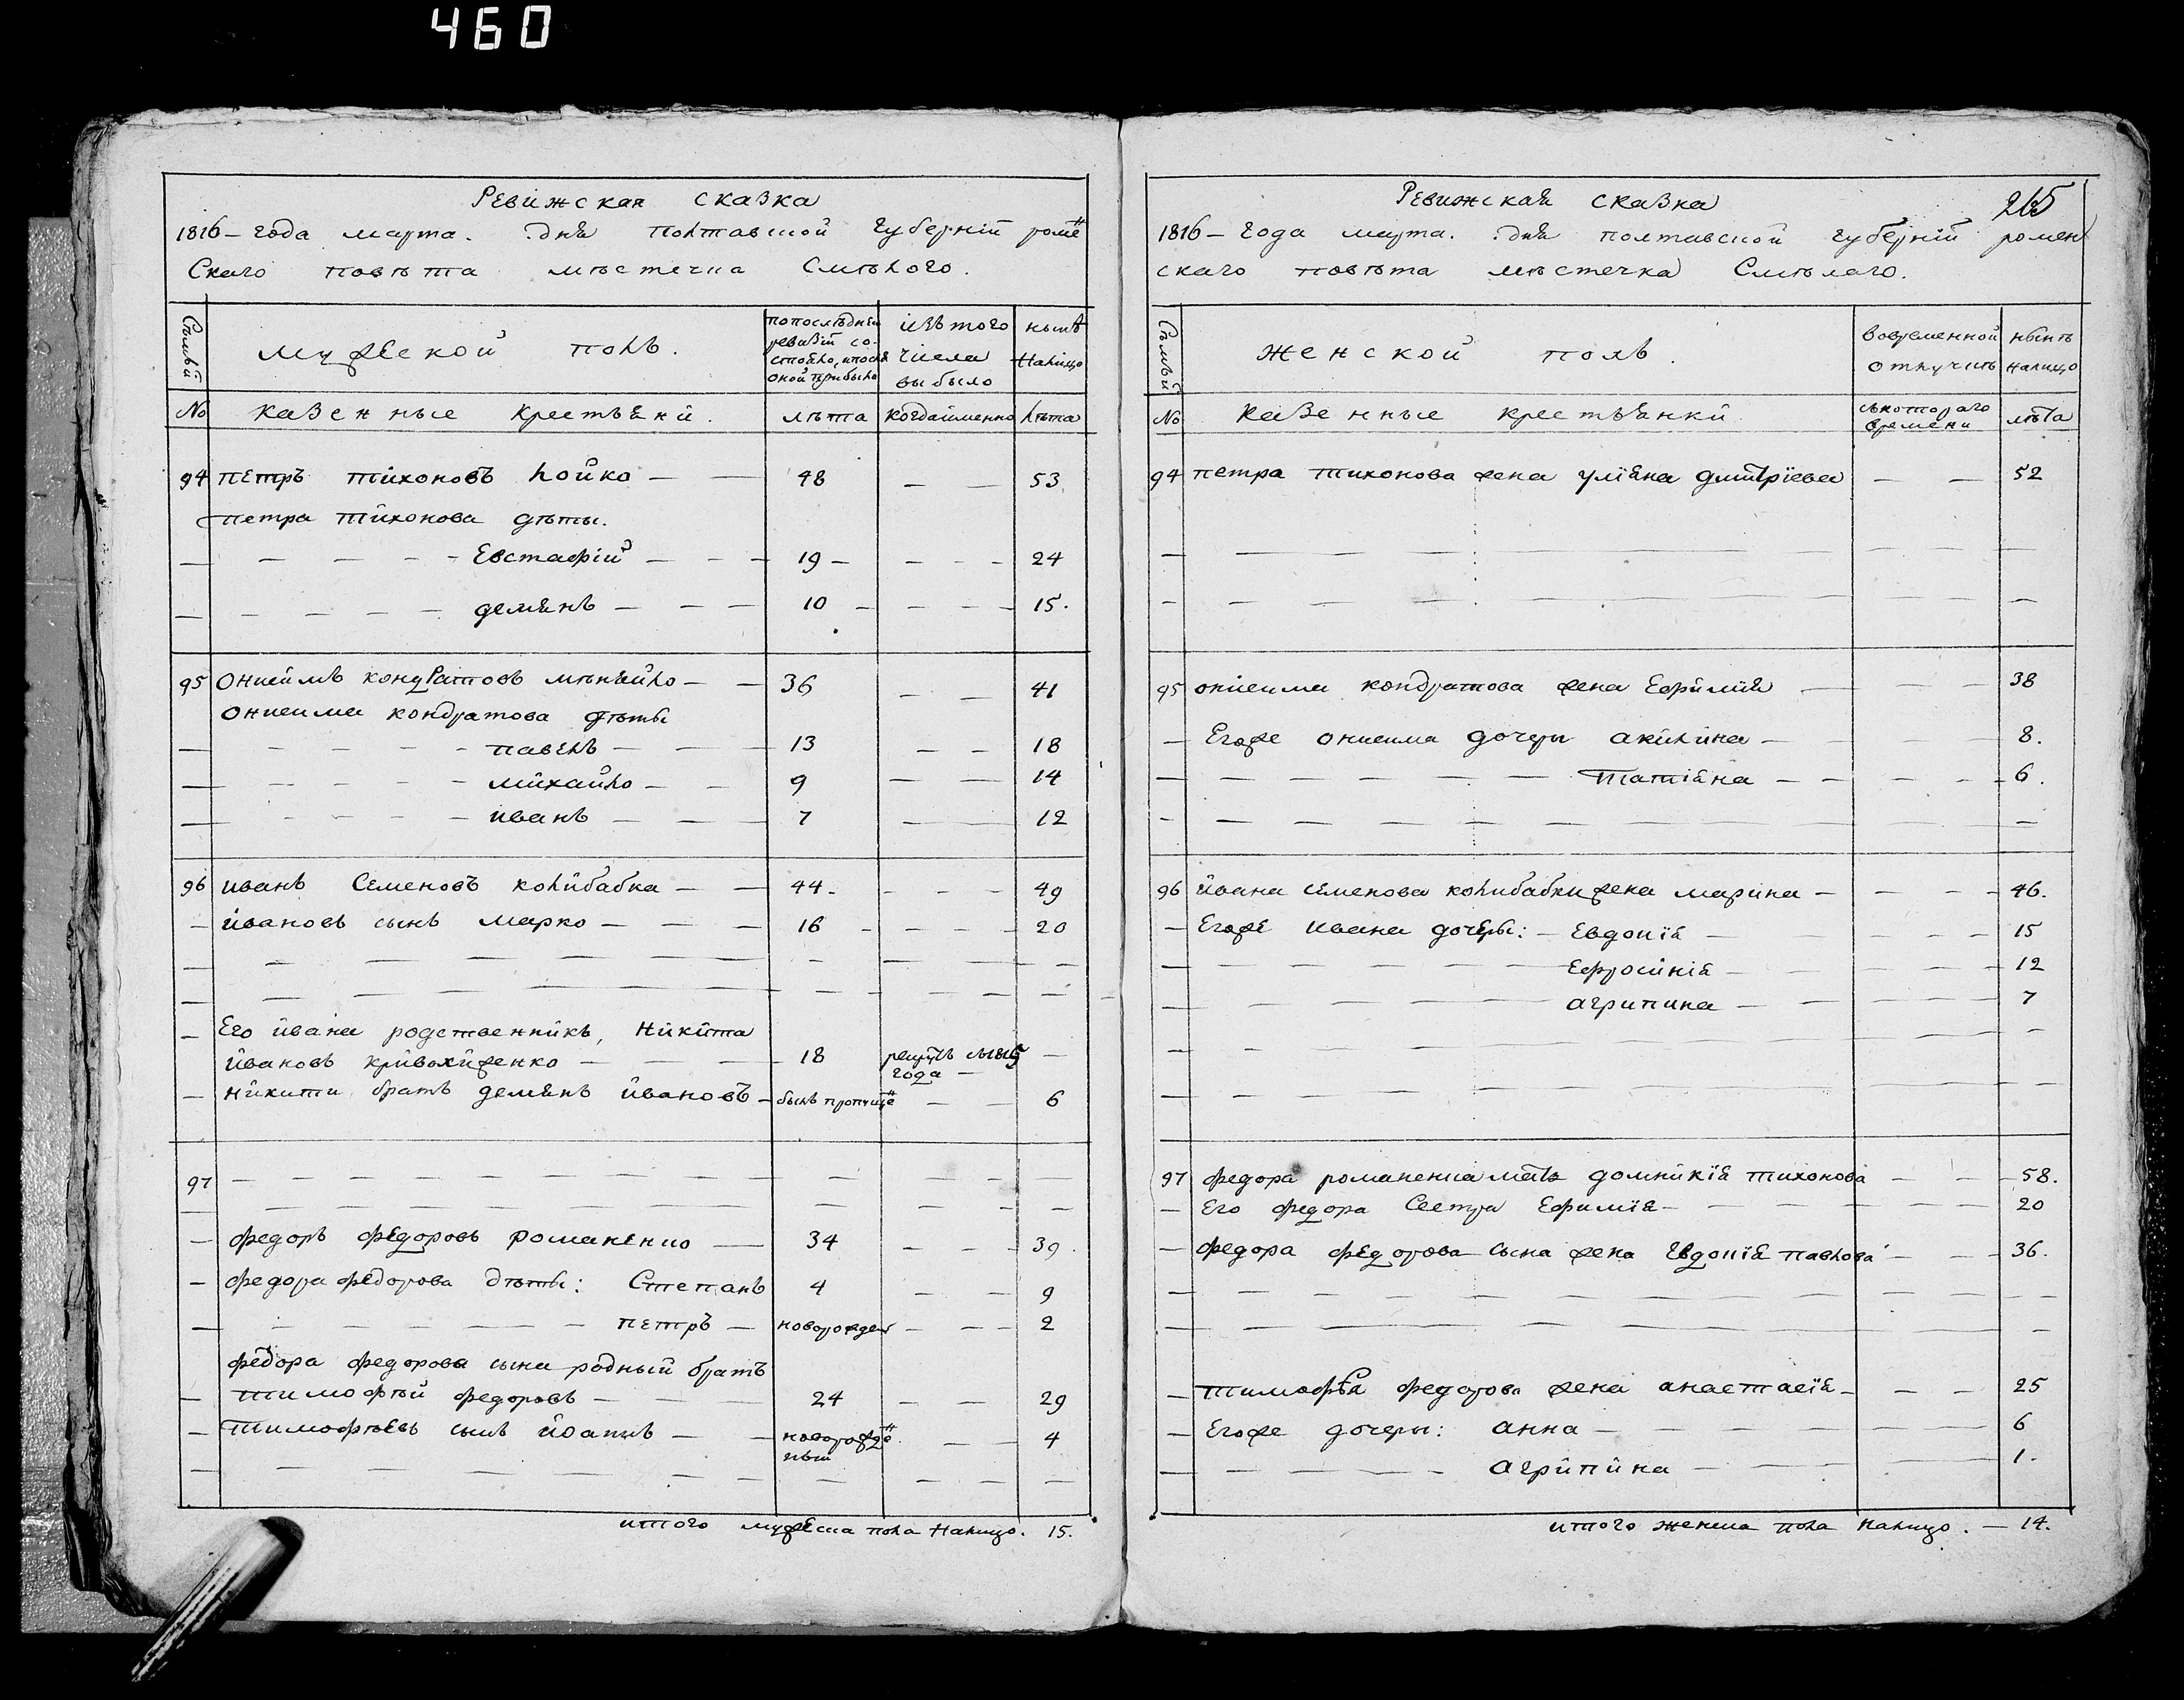 460
Ревижская сказка
1816 – года марта. дня полтавской губерніи роме͏н
Скаго повѣта мѣстечка Смѣлого.
Семьи
мужеской полъ.
попослѣдней ревизіи со- стояло, ипосля оной прибыло
изъ того числа выбыло
нынѣ налицо
№ казенные крестьяни.
лѣта когдаименно лѣта
94 петръ тихоновъ лойко — — 48 — — 53
петра тихонова дѣты.
— — — — Евстафій — — — 19 — — — — 24
— — — — демянъ — — — 10 — — — — 15.
95 Онисимъ кондратовъ мѣняйло — — 36 — — 41
Онисима кондратова дѣты
— — — — павелъ — — 13 — — 18
— — — — михайло — — 9 — — 14
— — — — иванъ — — — 7 — — 12
96 иванъ Семеновъ колибабка — — 44 — — — — 49
ивановъ сынъ марко — — — 16 — — — — 20
Его ивана родственникъ, Никита
ивановъ кривохиженко — — — 18 года —
никити братъ демянъ ивановъ — былъ пропуще͏н — — 6
97 — — — — — — — —
федоръ федоровъ романенко — 34 — — 39.
федора федорова дѣты: Степанъ 4 — — 9
— — — — — — петръ — новорожден — — — 2
федора федорова сына родный братъ
тимофѣй федоровъ — — — 24 — — 29
тимофѣевъ сынъ — — новорожде͏нный — — 4
итого мужеска пола налицо. 15.
Ревижская сказка
265
1816 – года марта. дня полтавской губерніи ромен
скаго повѣта мѣстечка Смѣлаго.
Семьи
женской полъ.
вовременной отлучкѣ
нынѣ налицо
№ казенные крестьянки
съкотораго времени
лѣта
94 петра тихонова жена уліяна дмитріева — — 52
95 онисима кондратова жена Ефимия — — — 38
— Егоже онисима дочеры акилина — — — 8.
— — — — — — татіяна — — — — 6.
96 ивана семенова колибабки жена марина — — — 46.
— Егоже ивана дочеры: — Евдокія — — — — 15
— — — — — Ефросинія — — — — 12
— — — — — агрипина — — — — 7
97 федора романенка мать домникія тихонова — — 58.
— Его федора Сестра Ефимія — — — — — 20
— федора федорова сына жена Евдокія павлова — — 36.
— тимофѣя федорова жена анастасія — — — 25
— Егоже дочеры: анна — — — — — 6
— — — — — агрипина — — — — 1.
итого женска пола налицо. — 14.